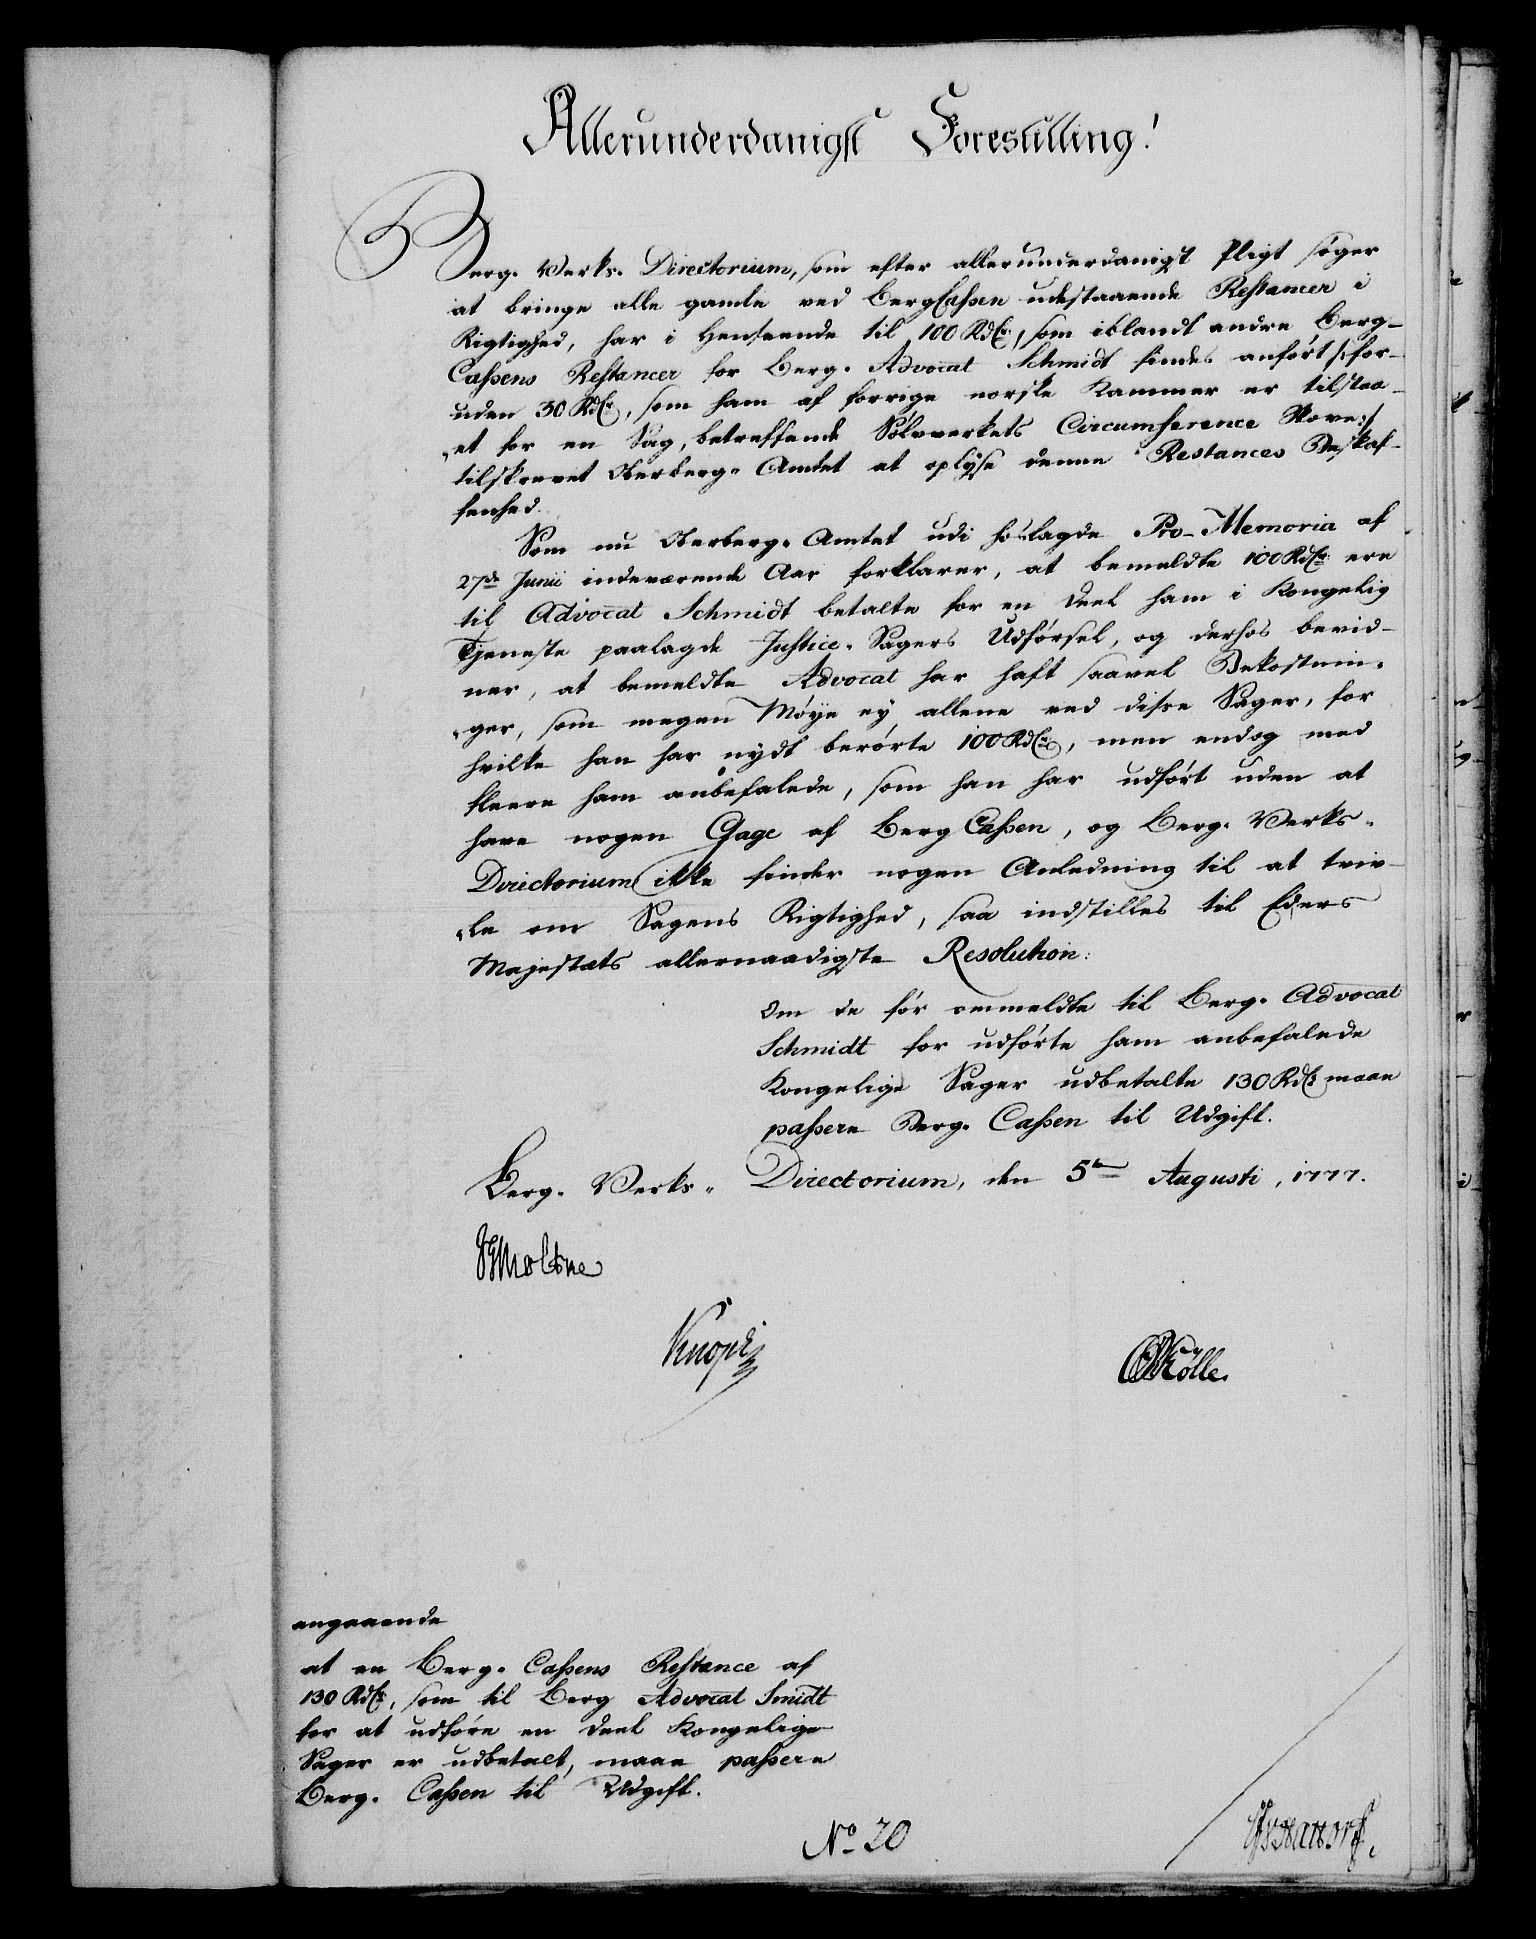 Allerunderdanigst Forestilling!
Berg-Verks-Directorium, som efter allerunderdanigst Pligt søger
at bringe alle gamle ved BergCassen udestaaende Restancer i
Rigtighed, har i Henseende til 100 Rdlr, som iblandt andre Berg-
Cassens Restancer for Berg-Advocat Schmidt findes anført /:for-
uden 30 Rdlr, som ham af forrige norske Kammer er tilstaa-
„et for en Sag, betreffende Sølvverkets Circumference Skove:/
tilskrevet Oberberg-Amtet at oplyse denne Restances Beskaf-
fenhed.
Som nu Oberberg-Amtet udi hoslagde Pro-Memoria af
27de Junii indeværende Aar forklarer, at bemeldte 100 Rdlr ere
til Advocat Schmidt betalte for en Deel ham i Kongelig
Tjeneste paalagde Justice-Sagers Udførsel, og derhos bevid-
ner, at bemeldte Advocat har haft saavel Bekostnin-
„ger, som megen Møye ey allene ved disse Sager, for
hvilke han har nydt berørte 100 Rdlr, men endog med
fleere ham anbefalede, som han har udført uden at
have nogen Gage af Berg Cassen, og Berg-Verks-
Directorium ikke finder nogen Anledning til at tviv-
„le om Sagens Rigtighed, saa indstilles til Eders
Majestæts allernaadigste Resolution:
Om de før ommeldte til Berg-Advocat
Schmidt for udførte ham anbefalede
Kongelige Sager udbetalte 130 Rdlr maae
passere Berg-Cassen til Udgift.
Berg-Verks-Directorium, den 5te Augusti, 1777.
Moltke
Knoph
Kölle.
angaaende
at en Berg-Cassens Restance af
130 Rdlr, som til Berg Advocat Smidt
for at udføre en Deel Kongelige
Sager er udbetalt, maae passere
Berg-Cassen til Udgift.
No 20